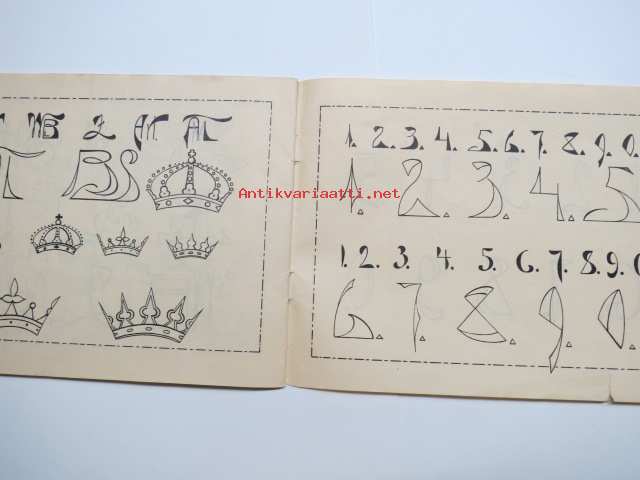 BS
Antikvariaatti.net
1. 2. 3. 4. 5. 6. 7. 8. 9. 0.
1. 2. 3. 4. 5
1. 2. 3. 4. 5. 6. 7. 8. 9.
6. 7. 8. 9. 0.